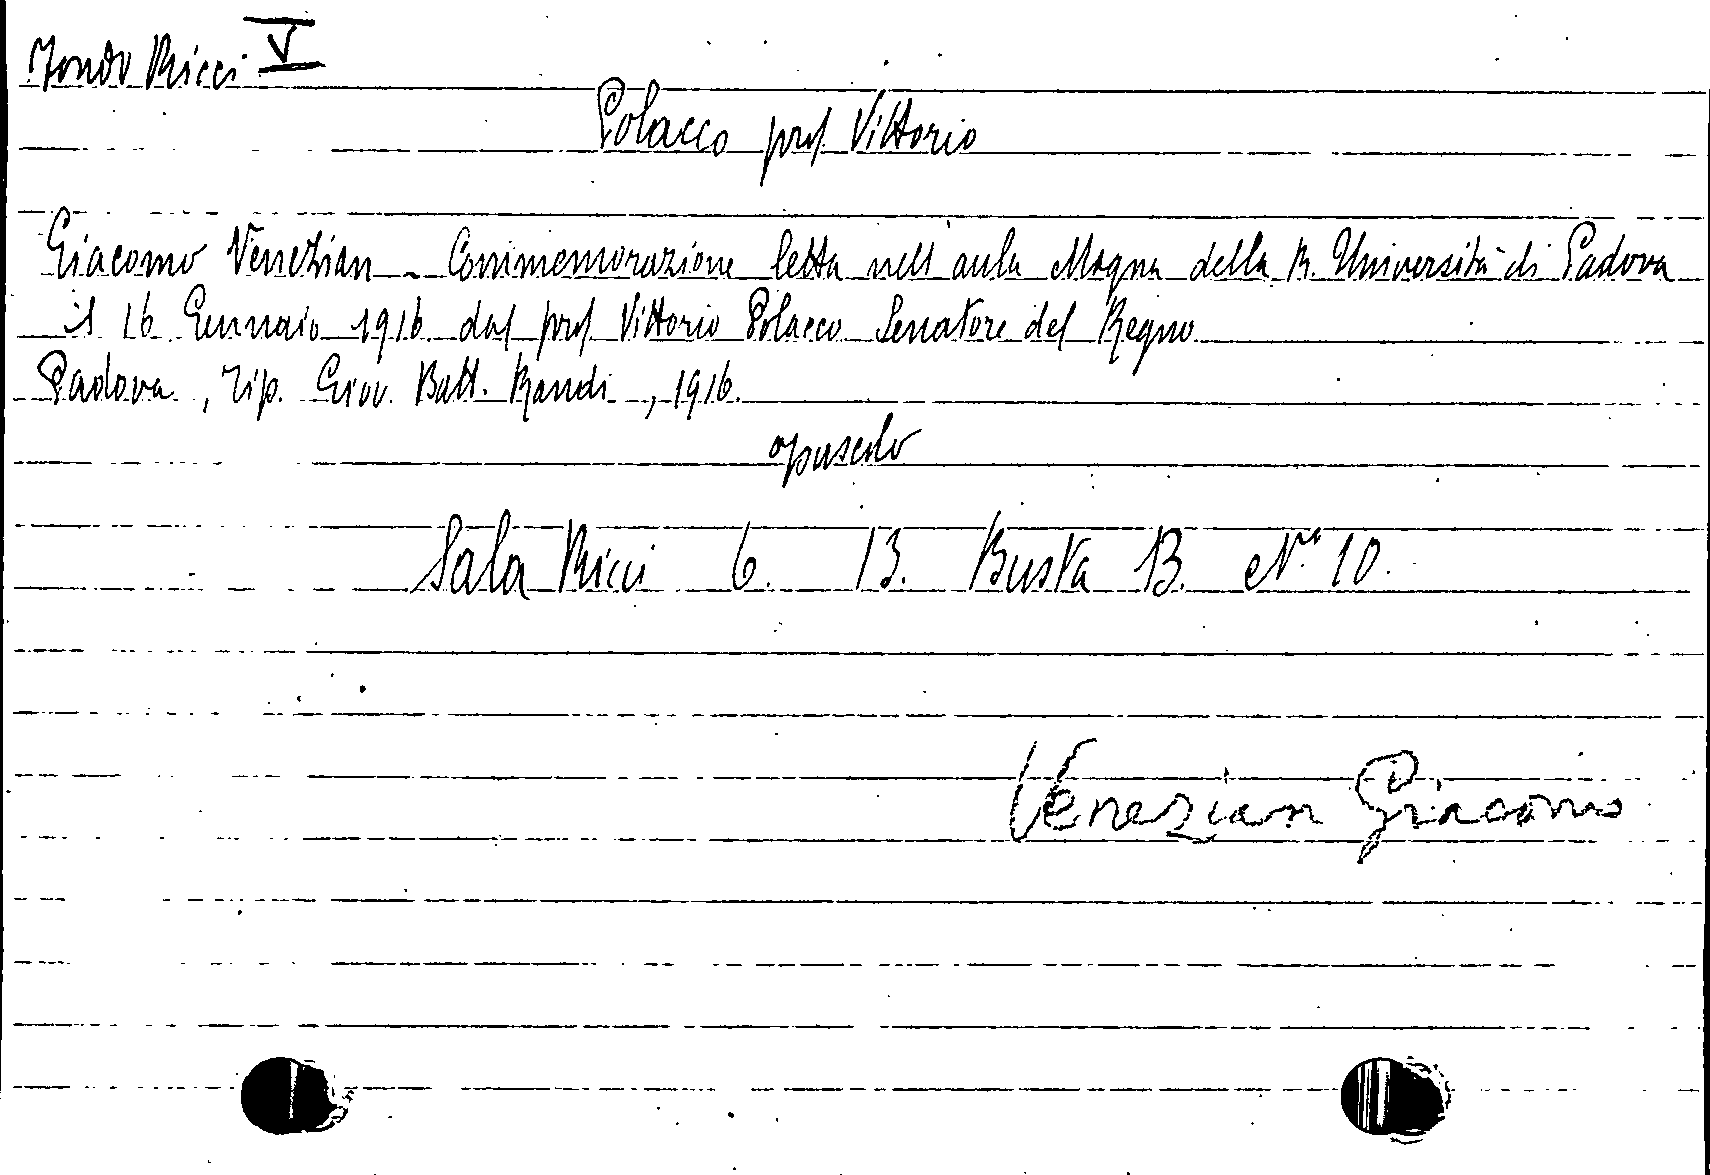 Fondo Ricci V
Polacco prof Vittorio
Giacomo Venezian - Commemorazione letta nell'aula Magna della R. Università di Padova
il 16 Gennaio 1916 dal prof Vittorio Polacco Senatore del Regno
Padova, Tip. Giov. Batt. Randi, 1916.
opuscolo
Sala Ricci 6. 13. Busta B. N° 10.
Venezian Giacomo